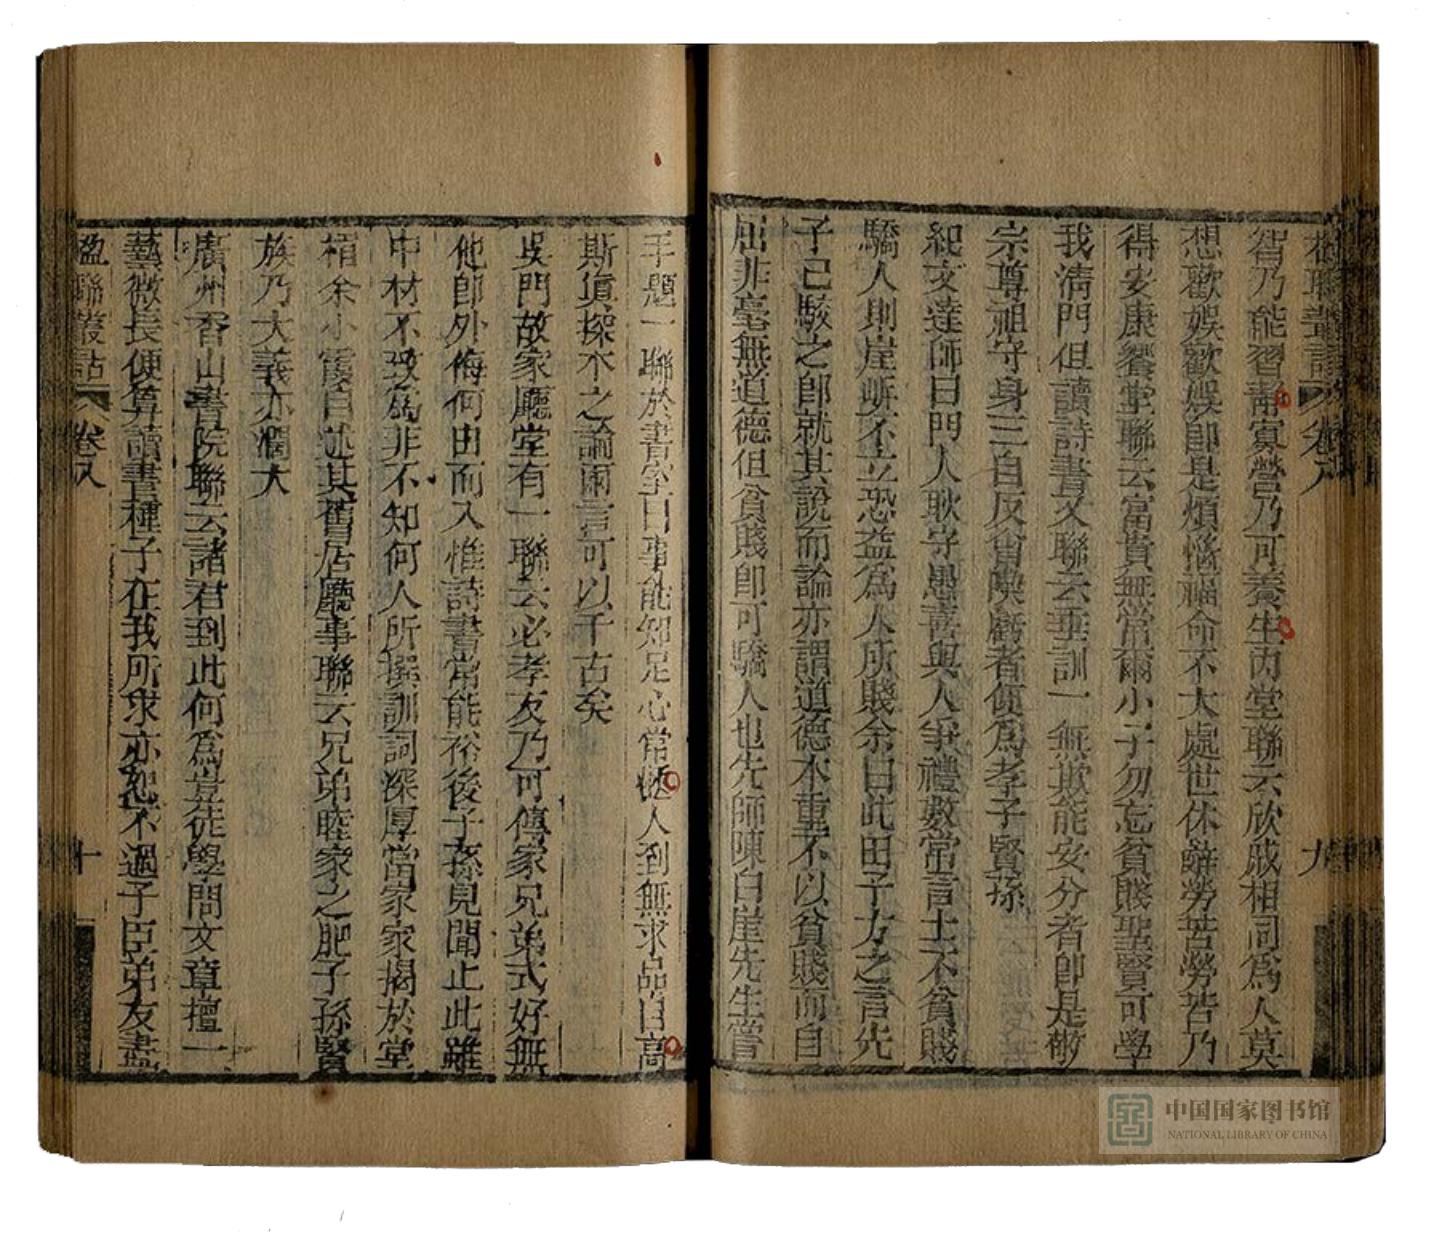 楹聯叢話 卷八 九
智乃能習靜寡營乃可養生丙堂聯云欣戚相同為人莫
想歡娛歡娛即是煩惱福命不大處世休辭勞苦勞苦乃
得安康饗堂聯云富貴無常爾小子勿忘貧賤聖賢可學
我清門但讀詩書又聯云垂訓一無欺能安分者即是敬
宗尊祖守身三自反省愆尤者便為孝子賢孫
紀文達師曰門人耿守愚善與人爭禮數常言士不貧賤
驕人則崖岸不立恐益為人所賤余曰此田子方之言先
子已駁之即就其說而論亦謂道德本重不以貧賤而自
屈非毫無道德但貧賤即可驕人也先師陳白崖先生嘗
手題一聯於書室曰事能知足心常愜人到無求品自高
斯真探本之論兩言可以千古矣
吳門故家廳堂有一聯云必孝友乃可傳家兄弟式好無
他即外侮何由而入惟詩書常能裕後子孫見聞止此雖
中材不致為非不知何人所撰訓詞深厚當家家揭於堂
楣余小霞自述其舊居廳事聯云兄弟睦家之肥子孫賢
族乃大義亦闊大
廣州香山書院聯云諸君到此何為豈徒學問文章擅一
藝微長便算讀書種子在我所求亦恕不過子臣弟友盡
楹聯叢話 卷八 十
中国国家图书馆
NATIONAL LIBRARY OF CHINA